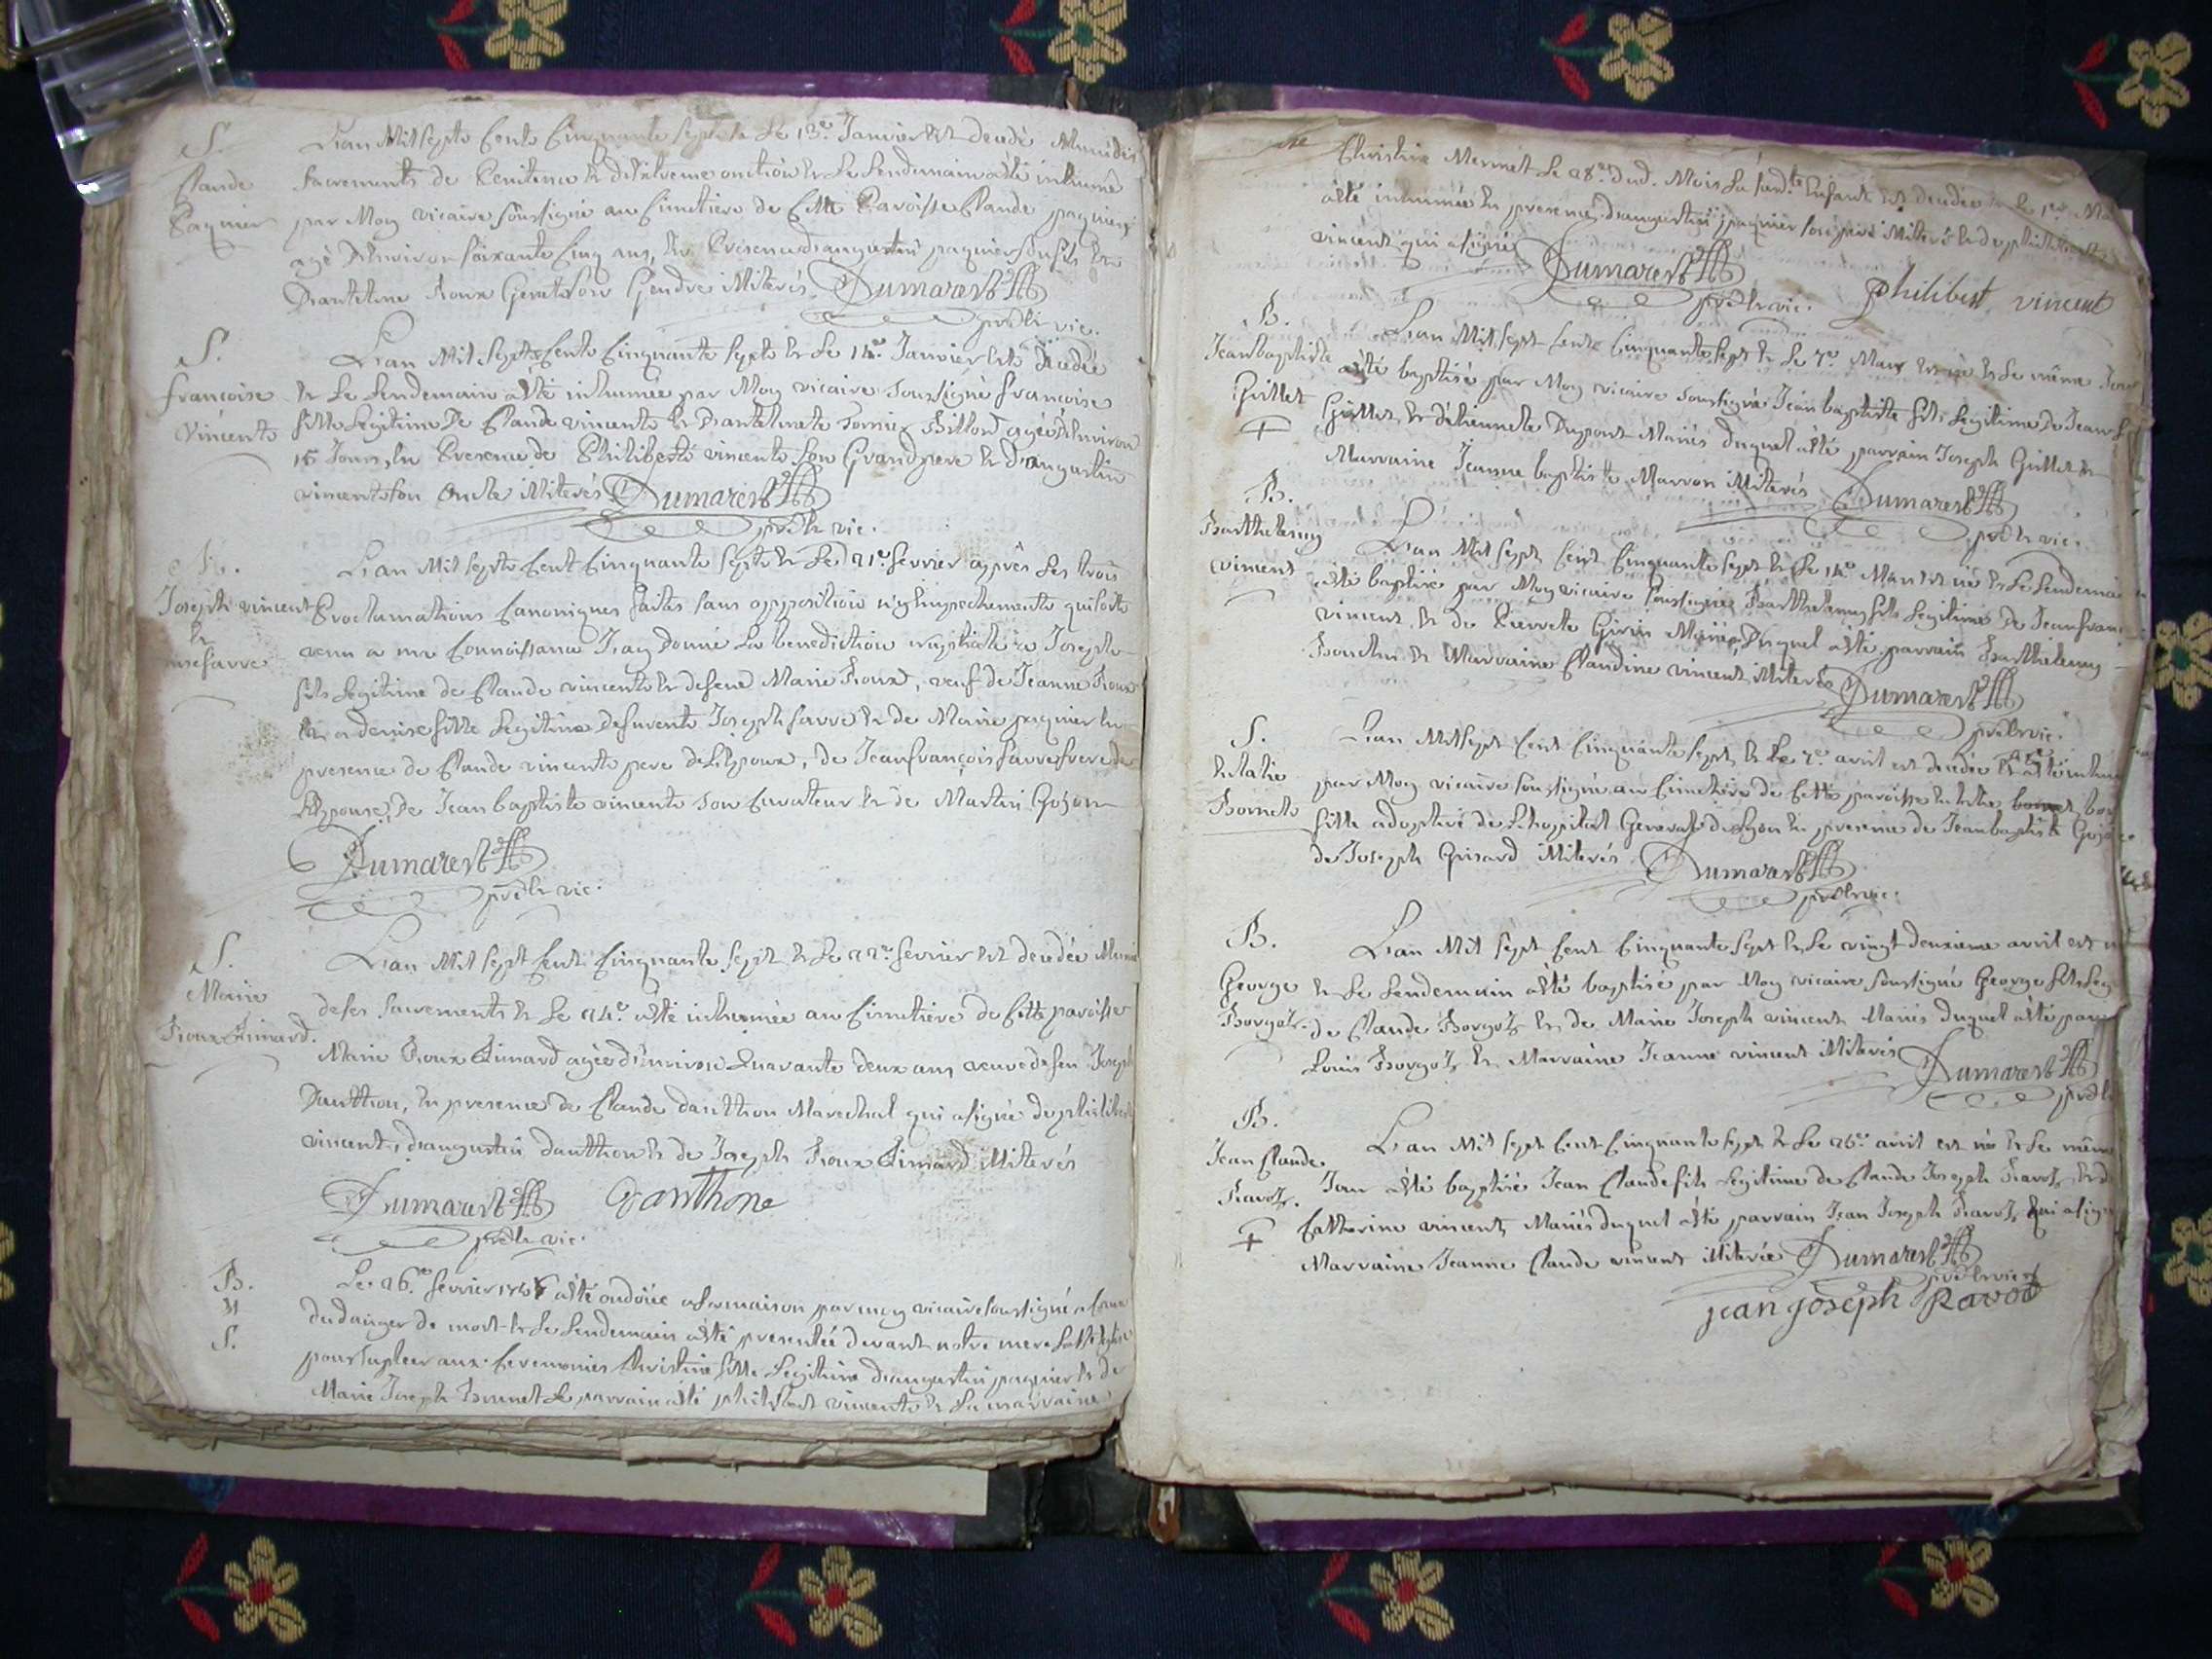 S.
Claude
Paquier
L'an Mil sept Cent Cinquante sept & Le 13e Janvier est decedé Muni des
sacrements de Penitence & d'Extreme onction & Le Lendemain a été inhumé
par Moy vicaire soussigné au Cimetiere de Cette Paroisse Claude paquier
agé d'Environ soixante Cinq ans, En Presence d'augustin paquier son fils &
Roux son Gendre illiterés Dumarest
pretre vic.
S.
françoise
Vincent
L'an Mil Sept Cent Cinquante sept & Le 14e Janvier est decedée
& Le Lendemain a été inhumée par Moy vicaire Soussigné francoise
fille Legitime De Claude vincent & D'anthelmete Billon agée d'Environ
15 Jours, En Presence de Philibert vincent son Grand pere & d'augustin
vincent son Oncle illiterés Dumarest
pretre vic.
Joseph vincent
&
favre
L'an Mil sept Cent Cinquante sept & Le 21e fevrier apprès Les trois
Proclamations Canoniques faites sans opposition n'y Empechement qui soit
venu a ma Connoissance J'ay Donné La benediction nuptiale a Joseph
fils Legitime de Claude vincent & de feue Marie Roux, veuf de Jeanne Roux
& a denise fille Legitime de Joseph favre & de Marie paquier En
presence de Claude vincent pere de L'Epoux, de Jean françois favre frere de
L'Epouse, De Jean baptiste vincent son Curateur & de Martin Gojon
Dumarest
pretre vic.
S.
Marie
Roux Simard.
L'an Mil sept Cent Cinquante sept & Le 22e fevrier est decedée Munie
de ses sacrements & Le 24e a été inhumée au Cimetiere de Cette paroisse
Marie Roux Simard agée d'Environ Quarante deux ans veuve de feu Joseph
Dautthon, En presence de Claude dautthon Marechal qui a signé de philibert
vincent, d'augustin dautthon & de Joseph Roux Simard illiterés
Dumarest Danthone
pretre vic.
B.
&
S.
Le 26e fevrier a été ondoiée a la maison par moy vicaire soussigné a Cause
du danger de mort & Le Lendemain a été presentée devant notre mere Ste Eglise
pour supleer aux Ceremonies Christine fille Legitime d'augustin paquier & de
Marie Joseph Brunet Le parrain a été philibert vincent & La marraine
Christine Mermet Le 28e dud. Mois La susd.te Enfant est decedée & Le 1er
a été inhumée En presence d'augustin paquier son pere illiteré & de philibert
vincent qui a signé Dumarest
pretre vic. philibert vincent
B.
Jean baptiste
Guillet
L'an Mil sept Cent Cinquante sept & Le 7e Mars est né & Le même Jour
a été baptisé par Moy vicaire soussigné Jean baptiste fils Legitime de Jean
Guillet & d'etiennete Dupont Mariés duquel a été parrain Joseph Guillet &
Marraine Jeanne baptiste Marron illiterés Dumarest
pretre vic.
B.
Barthelemy
vincent
L'an Mil sept Cent Cinquante sept & Le 14e Mars est né & Le Lendemain
a été baptisé par Moy vicaire soussigné Barthelemy fils Legitime De Jean
vincent & de Pierrete Girin Mariés Duquel a été parrain Barthelemy
& Marraine Claudine vincent illiterés Dumarest
pretre vic.
S.
Bornet
L'an Mil sept Cent Cinquante sept & Le 7e avril est decedée & a été
par Moy vicaire soussigné au Cimetiere de Cette paroisse
fille adoptive de L'hopital General de Lyon En presence de Jean baptiste
de Joseph Guisard illiterés Dumarest
pretre vic.
B.
George
Borgoz.
L'an Mil sept Cent Cinquante sept & Le vingt deuxieme avril est
& Le Lendemain a été baptisé par Moy vicaire soussigné George fils
de Claude Borgoz & de Marie Joseph vincent Mariés duquel a été
Louis Borgoz & Marraine Jeanne vincent illiterés
Dumarest
B.
Jean Claude
Ravoz.
L'an Mil sept Cent Cinquante sept & Le 26e avril est né & Le même
Jour a été baptisé Jean Claude fils Legitime de Claude Joseph Ravoz &
Catherine vincent Mariés duquel a été parrain Jean Joseph Ravoz qui a signé
Marraine Jeanne Claude vincent illiterée Dumarest
pretre vic.
jean joseph Ravod